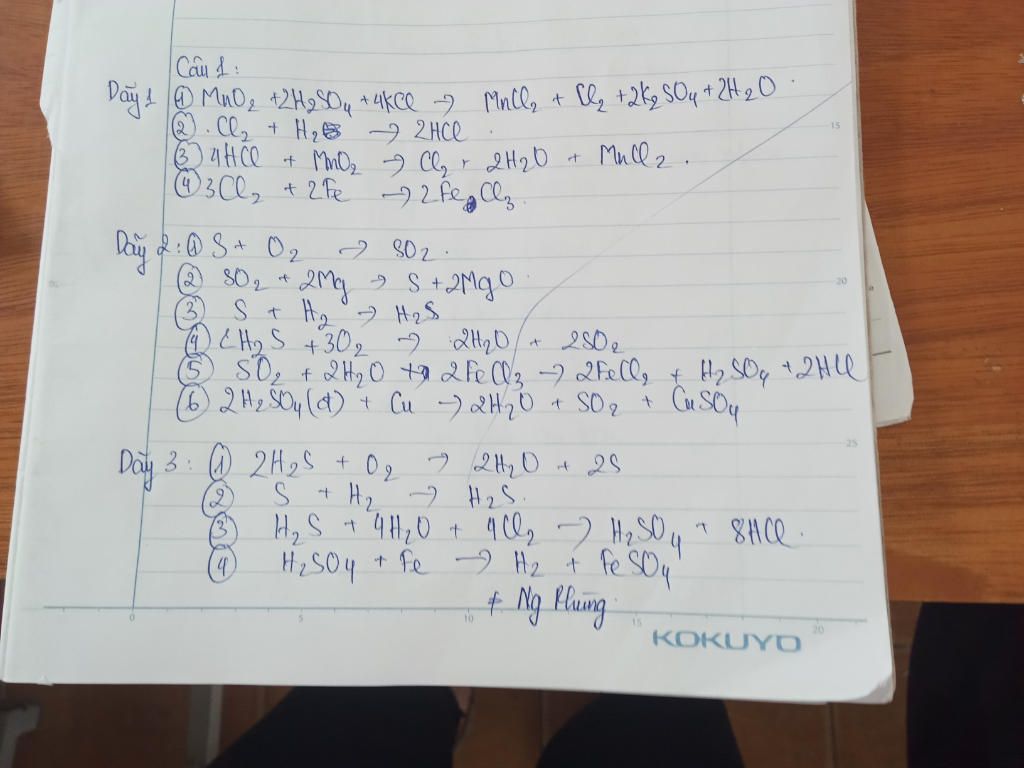 Câu 1:
Dãy 1 ① MnO₂ + 2H₂SO₄ + 4KCl → MnCl₂ + Cl₂ + 2K₂SO₄ + 2H₂O
② Cl₂ + H₂ → 2HCl
③ 4HCl + MnO₂ → Cl₂ + 2H₂O + MnCl₂.
④ 3Cl₂ + 2Fe → 2FeCl₃.
15
Dãy 2: ① S + O₂ → SO₂.
② SO₂ + 2Mg → S + 2MgO
20
③ S + H₂ → H₂S
④ 2H₂S + 3O₂ → 2H₂O + 2SO₂
⑤ SO₂ + 2H₂O + 2FeCl₃ → 2FeCl₂ + H₂SO₄ + 2HCl
⑥ 2H₂SO₄(đ) + Cu → 2H₂O + SO₂ + CuSO₄
25
Dãy 3: ① 2H₂S + O₂ → 2H₂O + 2S
② S + H₂ → H₂S.
③ H₂S + 4H₂O + 4Cl₂ → H₂SO₄ + 8HCl.
④ H₂SO₄ + Fe → H₂ + FeSO₄
Ng Phùng
0 5 10 15 20
KOKUYO